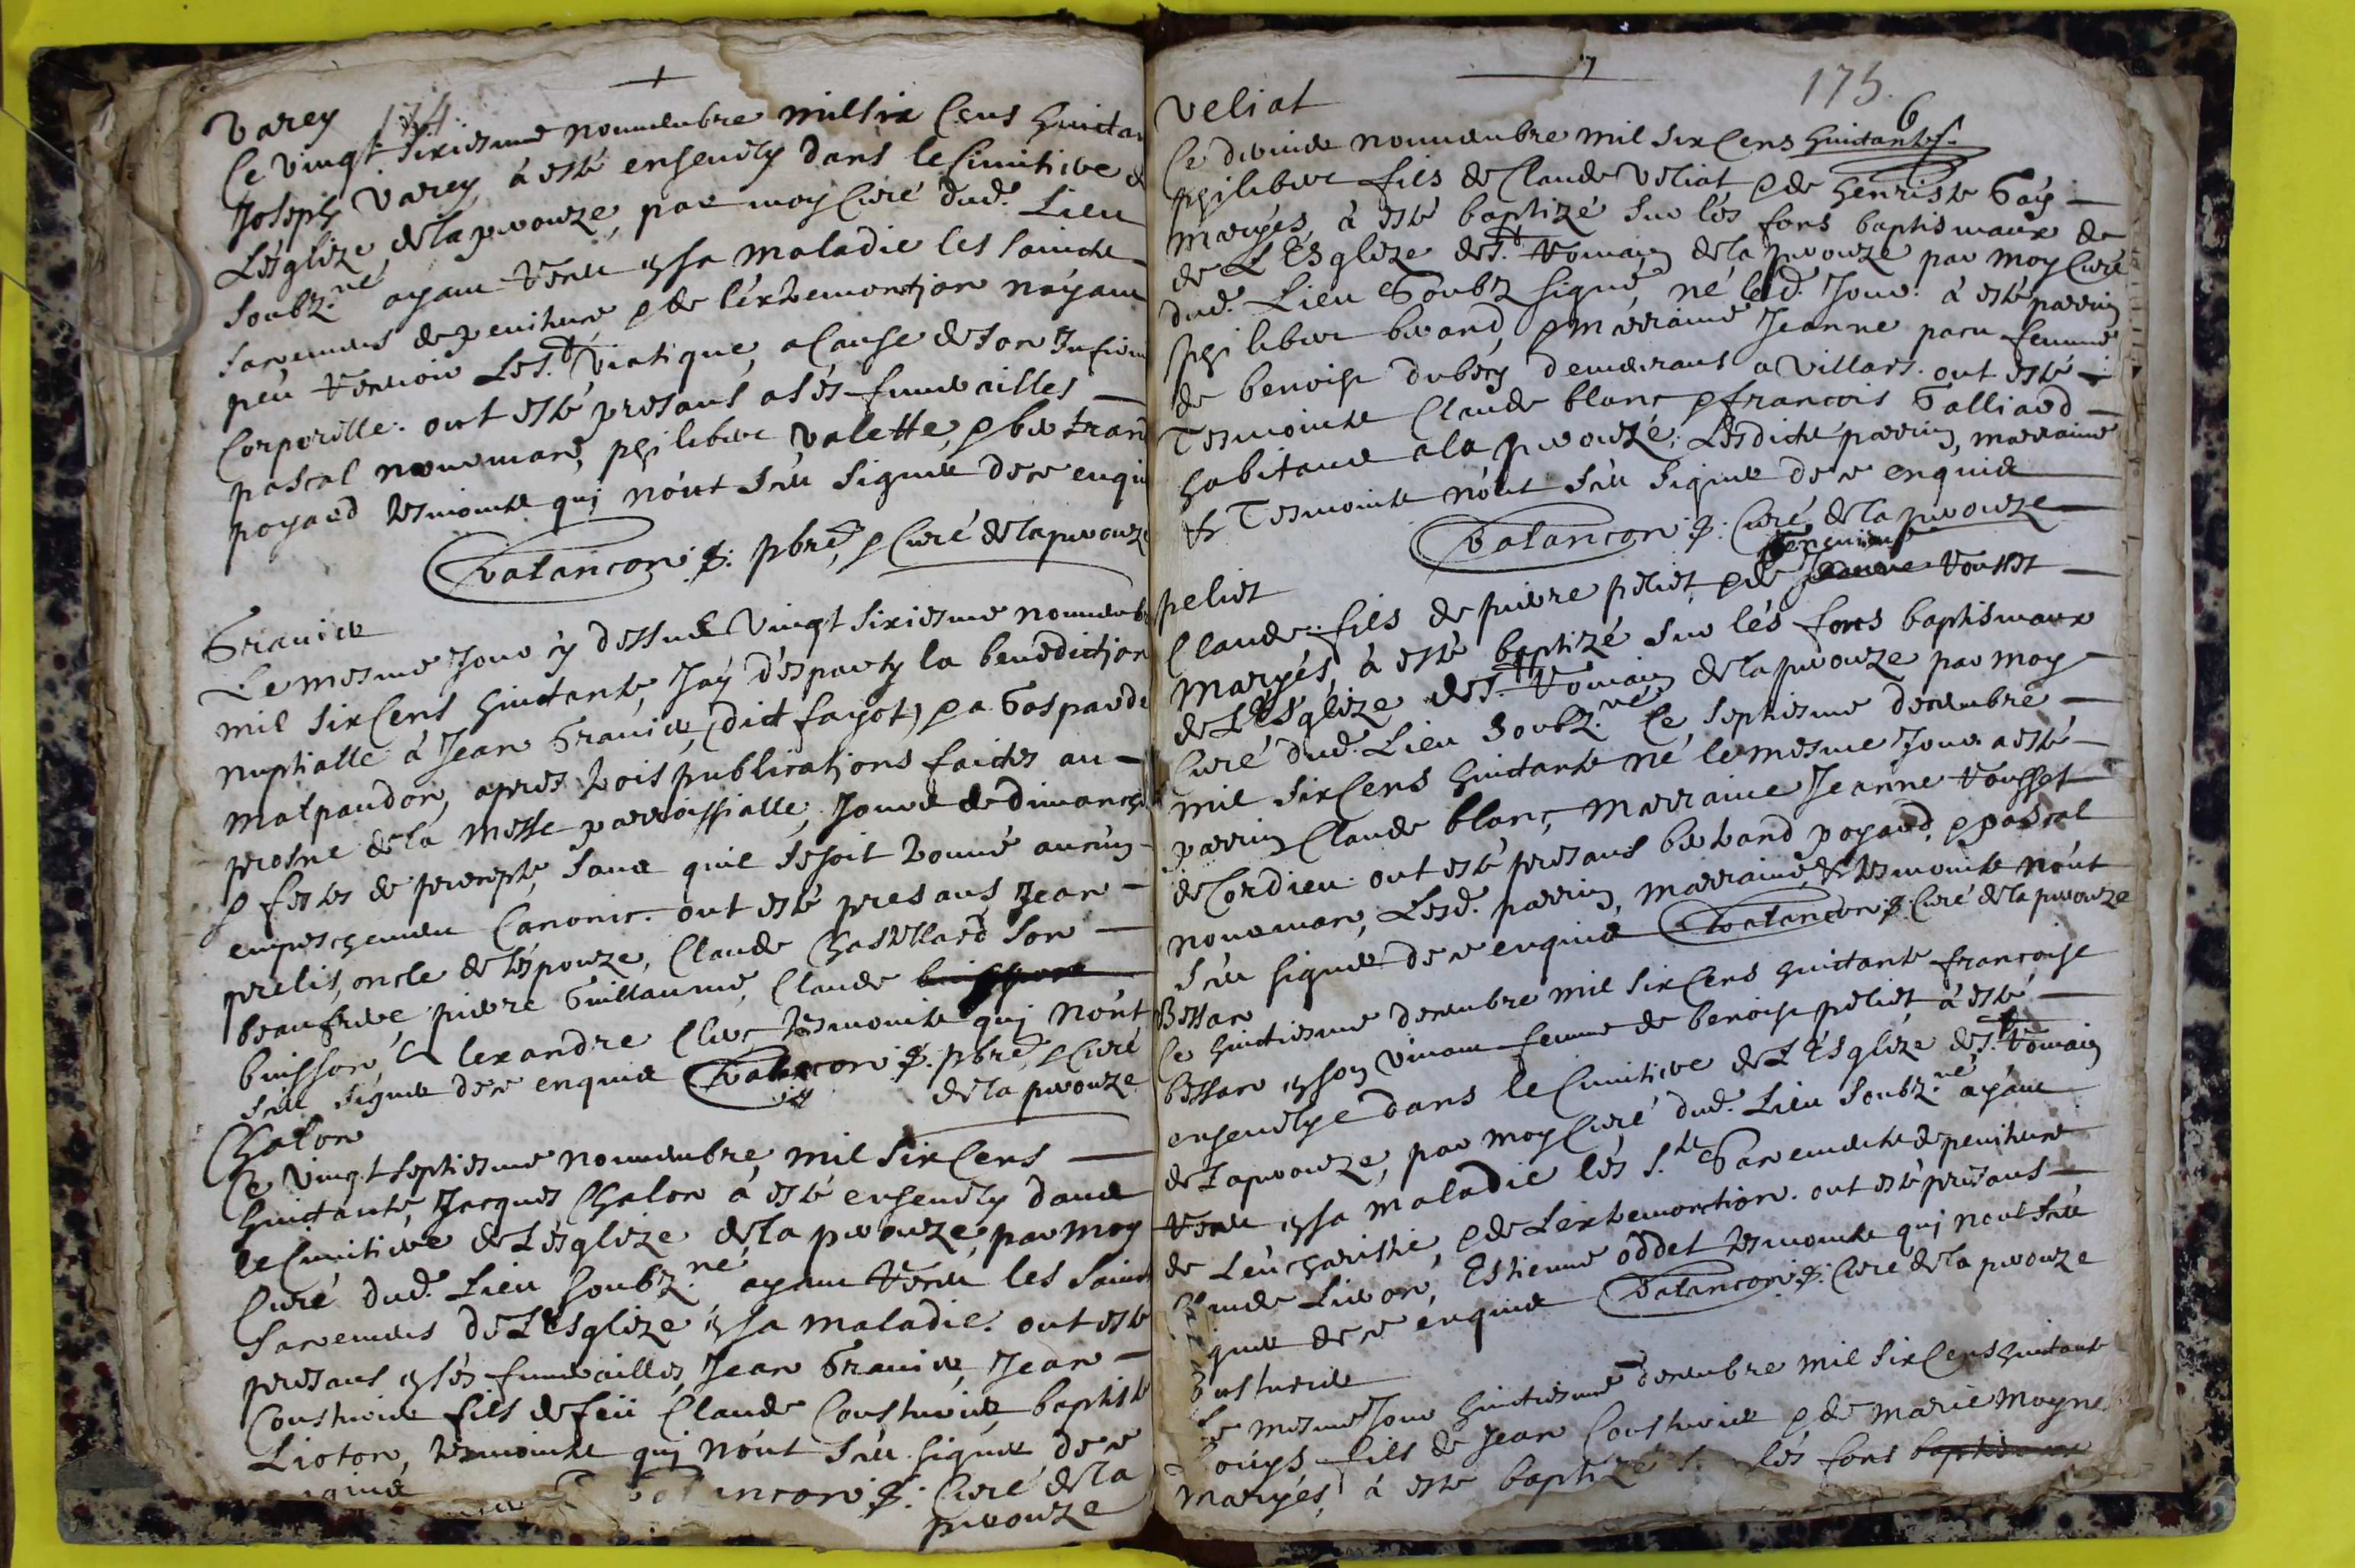 Varey 174.
Ce vingt sixiesme nouuembre mil six Cens huictan
Joseph Varey, à esté enseuely dans le Cimitiere d
L'ésglize de la perouze, par moy Curé dud. Lieu
soubz.né ayant receu en sa maladie les saincts
sacremens de penitence & de l'extremonction n'ayant
peu receuoir Le S.t Viatique, a Cause de son Infirm
Corporelle. ont esté presans a ses funerailles
pascal nouueman, philibert Valette, & bertrand
poyard tesmoints qui n'ont sceu signer de ce enqui
Valancon p. pbre, & Curé de la perouze
Granier
Le mesme Jour cy dessus vingt sixiesme nouuemb
mil six Cens huictante, J'ay desparty la benediction
nuptialle à Jean Granier, (dict fayot) & a Gasparde
malpaudon, apres trois publications faictes au
prosne de la messe parroissialle, Jours de dimanch
& festes de precepte, sans quil se soit trouué aucun
empeschement Canonic. ont esté presans Jean
prelis, oncle de l'espouze, Claude Chastellard son
beaufrere pierre Guillaume, Claude buisson
buisson, Alexandre Clerc tesmoints qui n'ont
sceu signer de ce enquis Valancon p. pbre, & Curé
de la perouze
Chalon
Ce vingt septiesme nouuembre, mil six Cens
huictante, Jacques Chalon à esté enseuely dans
le Cimitiere de L'ésglize de la perouze, par moy
Curé dud. Lieu soubz.né ayant receu les Saincts
Sacremens de L'ésglize en sa maladie. ont esté
presans en sés funerailles Jean Granier, Jean
Cousturier fils de feü Claude Cousturier, baptiste
Lioton, tesmoints qui n'ont sceu signer, de ce
enquis Valancon p. Curé de la
perouze
7
175.
Veliat
6
Ce dernier nouuembre mil six Cens huictante.
philibert fils de Claude Veliat & de henriste Gay
maryés, à esté baptizé sur lés fons baptismaux de
de L'Esglize de S.t Romain de la perouze par moy Curé
dud. Lieu Soubz signé, né led. Jour. à esté parrin
philibert berard, & marraine Jeanne paru femme
de benoist dubécy demeurant a Villars. ont esté
Tesmoints Claude blanc & francois Galliard
habitans a la perouze; Lésdicts parrin, marraine
& Tesmoints n'ont sceu signer de ce enquis
Valancon p. Curé de la perouze
peliet
Claude fils de pierre peliet, & de Jeanne rousset
maryés, à esté baptizé sur lés fons baptismaux
de L'ésglize de S.t Romain de la perouze par moy
Curé dud. Lieu Soubz.né Ce septiesme decembre
mil six Cens huictante né le mesme Jour a esté
parrin Claude blanc, marraine Jeanne rousset
de Cordieu. ont esté presans bertrand poyard, & pascal
nouueman, Lesd. parrin, marraine & tesmoints n'ont
sceu signer de ce enquis Valancon p. Curé de la perouze
Bessan
Ce huictiesme decembre mil six Cens huictante francoise
bessan en son viuant femme de benoist peliet, à esté
enseuelye dans le Cimitiere de L'Esglize de S.t Romain
de La perouze, par moy Curé dud. Lieu soubz.né ayant
receu en sa maladie lés S.ts Sacrements de penitence
de L'eucharistie, & de L'extremonction. ont esté presans
Claude Liuon, Estienne oddet tesmoints qui n'ont sceu
signer de ce enquis Valancon p. Curé de la perouze
Cousturier
Le mesme Jour huictiesme decembre mil six Cens huictante
Louys fils de Jean Cousturier & de marie moyne
maryés, à esté baptizé sur lés fons baptismaux